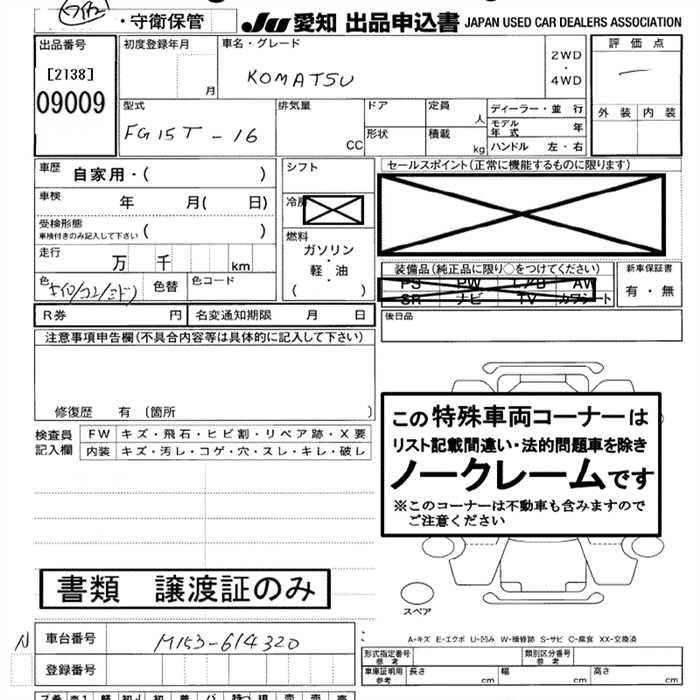 ・守衛保管 JU 愛知 出品申込書 JAPAN USED CAR DEALERS ASSOCIATION
出品番号
[2138]
09009
初度登録年月
月
車名・グレード
KOMATSU
2WD
・
4WD
評価点
一
外装 内装
型式
FG15T-16
排気量
CC
ドア
形状
定員
人
積載
kg
ディーラー・並行
モデル年式 年
ハンドル 左・右
車歴 自家用・( )
車検 年 月( 日)
受検形態
車検付きのみ記入して下さい ( )
走行 万 千 km
色 キイロ/コン/ミドリ
色替
色コード
シフト
冷房
燃料
ガソリン
・
軽・油
( )
セールスポイント(正常に機能するものに限ります)
装備品(純正品に限り○をつけてください)
PS PW エアB AW
SR ナビ TV カワシート
新車保証書
有・無
R券 円
名変通知期限 月 日
後日品
注意事項申告欄(不具合内容等は具体的に記入して下さい)
修復歴 有〔箇所 〕
検査員記入欄
FW キズ・飛石・ヒビ割・リペア跡・X要
内装 キズ・汚レ・コゲ・穴・スレ・キレ・破レ
この特殊車両コーナーは
リスト記載間違い・法的問題車を除き
ノークレームです
※このコーナーは不動車も含みますので
ご注意ください
書類 譲渡証のみ
スペア
A-キズ E-エクボ U-凹み W-補修跡 S-サビ C-腐食 XX-交換済
N
車台番号 M153-614320
登録番号
形式指定番号
参考
類別区分番号
参考
車庫証明用
参考
長さ cm
幅 cm
高さ cm